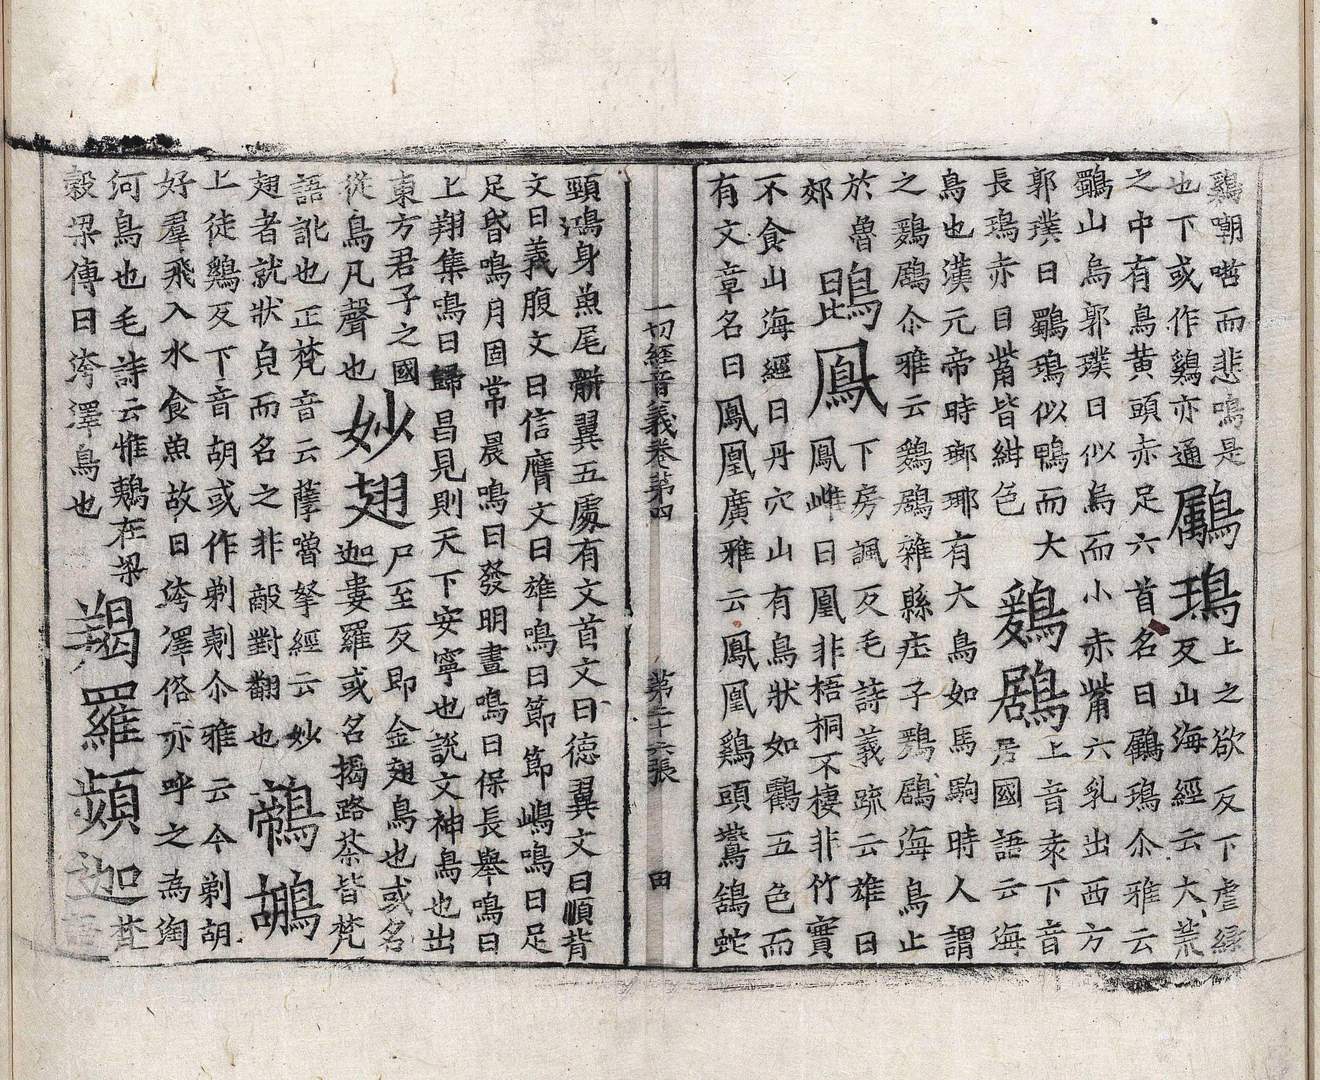 鷄嘲哳而悲鳴是
也下或作鷄亦通鸀鳿上之欲反下虐緑
反山海經云大荒
之中有鳥黄頭赤足六首名曰鸀鳿尒雅云
鸀山烏郭璞曰似烏而小赤觜六乳出西方
郭璞曰鸀鳿似鴨而大
長鳿赤目觜皆紺色鶢鶋上音爰下音
居國語云海
鳥也漢元帝時瑯琊有大鳥如馬駒時人謂
之鶢鶋尒雅云鶢鶋雜縣疰子鶢鶋海鳥止
於魯
郊鵾鳳下房諷反毛詩義疏云雄曰
鳳雌曰凰非梧桐不棲非竹實
不食山海經曰丹穴山有鳥狀如鸖五色而
有文章名曰鳳凰廣雅云鳳凰鷄頭鷰鵠蛇
一切經音義卷第四 第二十六張 田
頸鴻身魚尾骿翼五處有文首文曰德翼文曰順背
文曰義腹文曰信膺文曰雄鳴曰節節鳴曰足
足昏鳴月固常晨鳴曰發明晝鳴曰保長舉鳴曰
上翔集鳴曰歸昌見則天下安寧也説文神鳥也出
東方君子之國
從鳥凡聲也妙翅尸至反即金翅鳥也或名
迦婁羅或名揭路荼皆梵
語訛也正梵音云蘖嚕拏經云妙
翅者就狀皃而名之非敵對翻也鵜鶘
上徒鷄反下音胡或作剃㓮尒雅云今剃胡
好羣飛入水食魚故曰洿澤俗亦呼之為淘
河鳥也毛詩云惟鵜在梁
穀梁傳曰洿澤鳥也羯羅頻迦梵
語